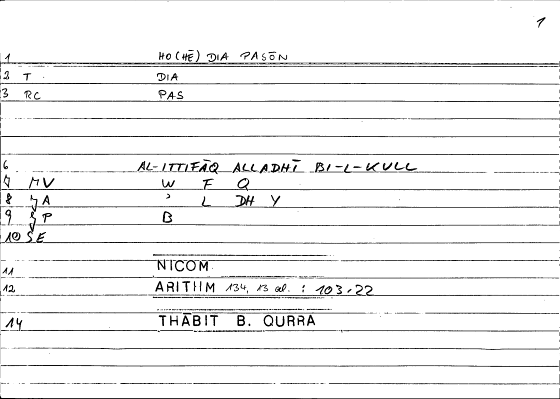 1
1 HO(HĒ) DIA PASŌN
2 T DIA
3 RC PAS
6 AL-ITTIFĀQ ALLADHĪ BI-L-KULL
7 MV W F Q
8 ʾ L DH Y
9 B
10 SE
11 NICOM
12 ARITHM 134, 13 al. : 103,22
14 THĀBIT B. QURRA